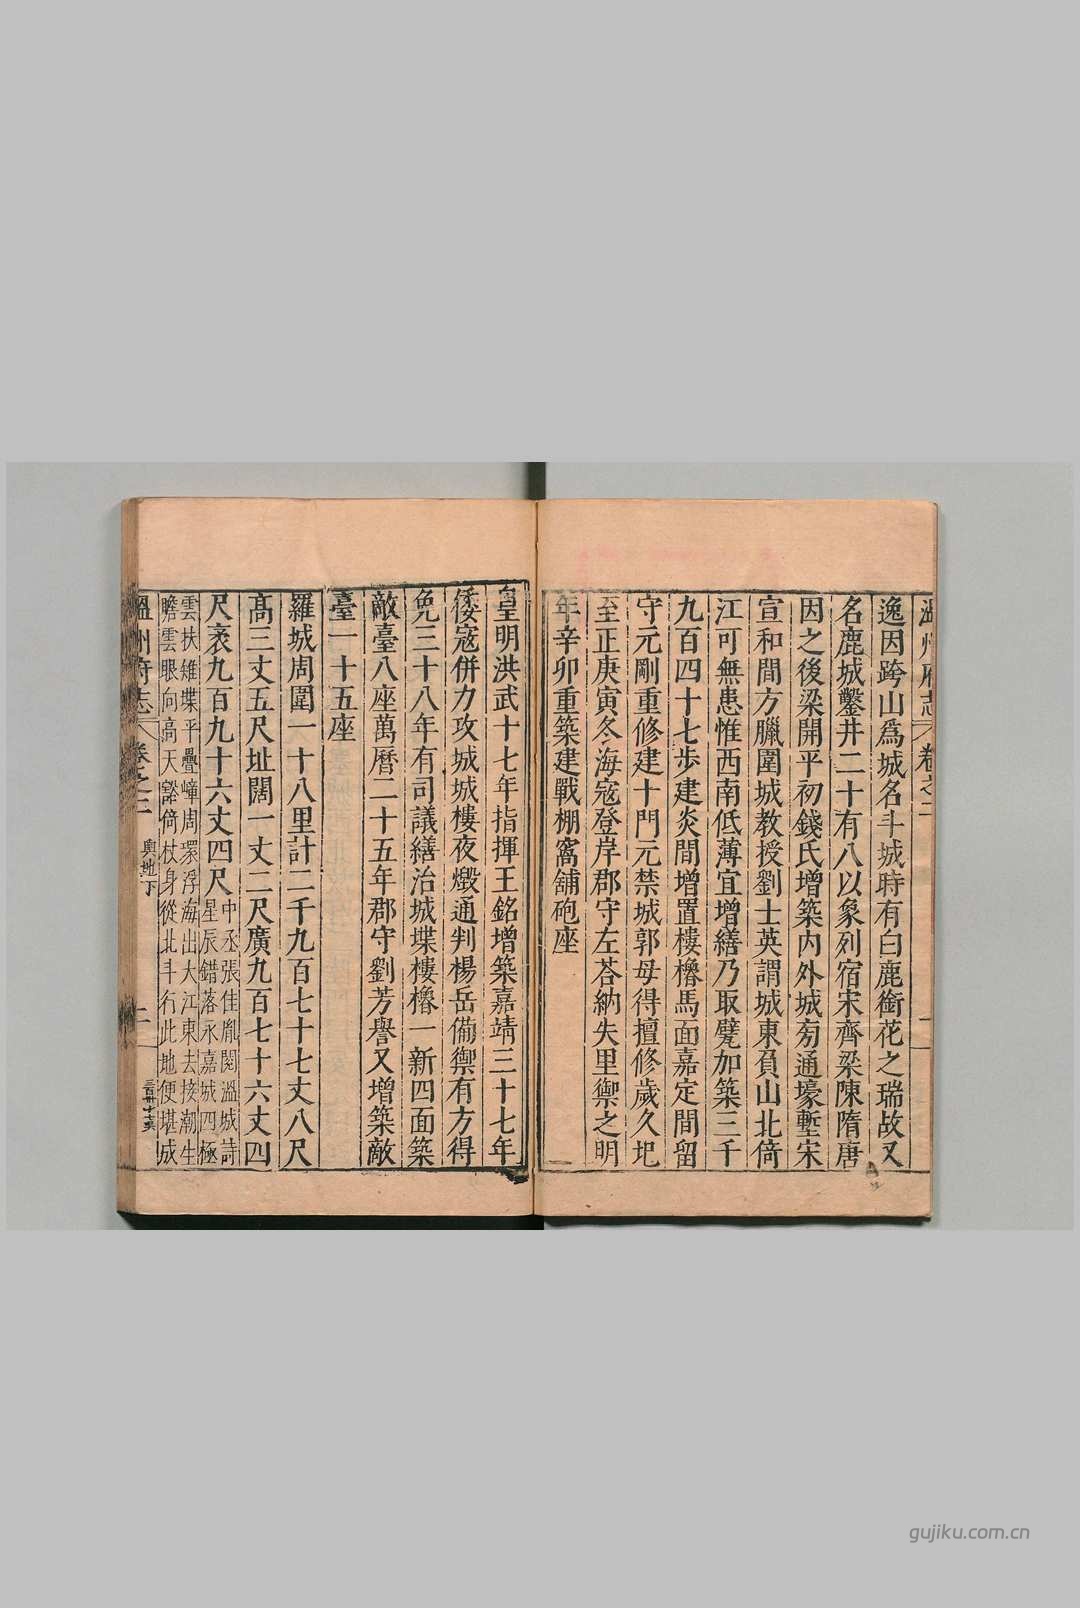 溫州府志 卷之二
逸因跨山爲城名斗城時有白鹿銜花之瑞故又
名鹿城鑿井二十有八以象列宿宋齊梁陳隋唐
因之後梁開平初錢氏增築內外城旁通壕塹宋
宣和間方臘圍城教授劉士英謂城東負山北倚
江可無患惟西南低薄宜增繕乃取甓加築三千
九百四十七步建炎間增置樓櫓馬面嘉定間留
守元剛重修建十門元禁城郭毋得擅修歲久圮
至正庚寅冬海寇登岸郡守左荅納失里禦之明
年辛卯重築建戰棚窩舖砲座
皇明洪武十七年指揮王銘增築嘉靖三十七年
倭寇併力攻城城樓夜燬通判楊岳備禦有方得
免三十八年有司議繕治城堞樓櫓一新四面築
敵臺八座萬曆二十五年郡守劉芳譽又增築敵
臺一十五座
羅城周圍一十八里計二千九百七十七丈八尺
高三丈五尺址闊一丈二尺廣九百七十六丈四
尺袤九百九十六丈四尺
中丞張佳胤閱溫城詩
星辰錯落永嘉城四極
雲扶雉堞平疊嶂周環浮海出大江東去接潮生
瞻雲眼向高天豁倚杖身從北斗行此地便堪成
溫州府志 卷之二 輿地下 二